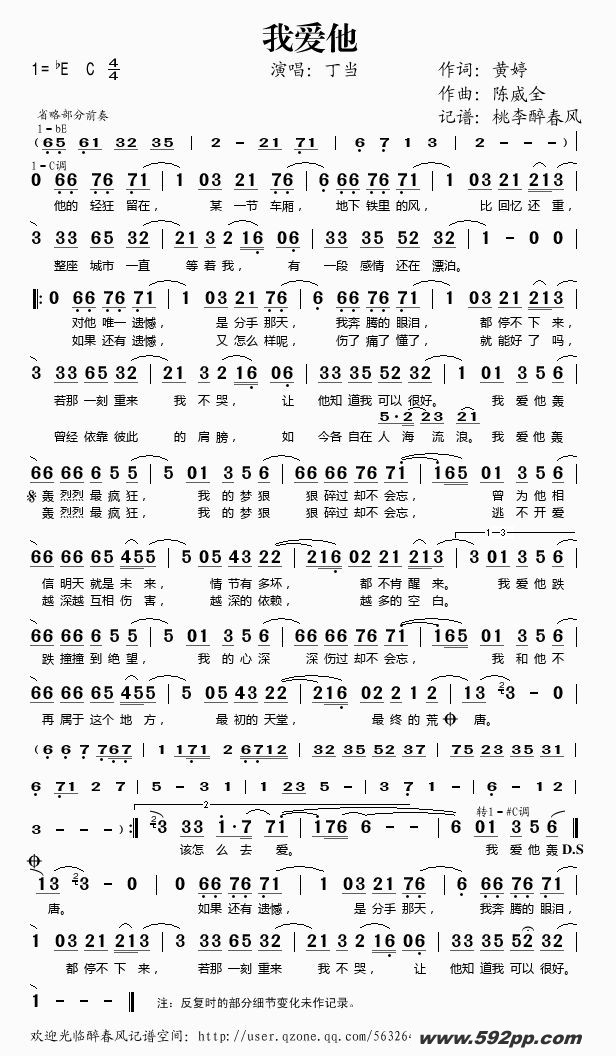 我爱他
1=♭E C 4/4 演唱：丁当 作词：黄婷
作曲：陈威全
记谱：桃李醉春风
省略部分前奏
1-bE
(65 61 32 35 | 2 - 21 71 | 6 7 1 3 | 2 - - -)
1-C调
0 66 76 71 | 1 03 21 76 | 6 66 76 71 | 1 03 21 213
他的 轻狂 留在， 某 一节 车厢， 地下 铁里 的风， 比 回忆 还 重，
3 33 65 32 | 21 3 2 16 06 | 33 35 52 32 | 1 - 0 0
整座 城市 一直 等 着 我， 有 一段 感情 还在 漂泊。
‖: 0 66 76 71 | 1 03 21 76 | 6 66 76 71 | 1 03 21 213
对他 唯一 遗憾， 是 分手 那天， 我奔 腾的 眼泪， 都 停不 下 来，
如果 还有 遗憾， 又 怎么 样呢， 伤了 痛了 懂了， 就 能好 了 吗，
3 33 65 32 | 21 3 2 16 06 | 33 35 52 32 | 1 01 3 5 6
若那 一刻 重来 我 不 哭， 让 他知 道我 可以 很好。 我 爱 他 轰
5·2 23 21
曾经 依靠 彼此 的 肩 膀， 如 今各 自在 人 海 流 浪。 我 爱他 轰
66 66 6 5 5 | 5 01 3 5 6 | 66 66 76 71 | 165 01 3 5 6
轰 烈烈 最 疯 狂， 我 的 梦 狠 狠 碎过 却不 会忘， 曾 为 他 相
轰 烈烈 最 疯 狂， 我 的 梦 狠 狠 碎过 却不 会忘， 逃 不 开 爱
1-3
66 66 65 455 | 5 05 43 22 | 216 02 21 213 | 5 01 3 5 6
信 明天 就是 未 来， 情 节有 多坏， 都 不肯 醒 来。 我 爱 他 跌
越 深越 互相 伤 害， 越 深的 依赖， 越 多的 空 白。
5 66 66 6 5 5 | 5 01 3 5 6 | 66 66 76 71 | 165 01 3 5 6
跌 撞撞 到 绝 望， 我 的 心 深 深 伤过 却不 会忘， 我 和 他 不
66 66 65 455 | 5 05 43 22 | 216 02 2 1 2 | 13 3 - 0
再 属于 这个 地 方， 最 初的 天堂， 最 终的 荒 唐。
(6 6 7 767 | 1 171 2 6712 | 32 35 52 37 | 75 23 35 31 |
6 71 2 7 | 5 - 3 1 | 1 23 5 - | 3 7 1 - | 6 - 1 2 |
2
转1-#C调
3 - - ) :‖ 3 33 1·7 71 | 176 6 - - | 6 01 3 5 6 ‖
该怎 么 去 爱。 我 爱 他 轰 D.S
13 3 - 0 | 0 66 76 71 | 1 03 21 76 | 6 66 76 71 |
唐。 如果 还有 遗憾， 是 分手 那天， 我奔 腾的 眼泪，
1 03 21 213 | 3 33 65 32 | 21 3 2 16 06 | 33 35 52 32 |
都 停不 下 来， 若那 一刻 重来 我 不 哭， 让 他知 道我 可以 很好。
1 - - - ‖ 注：反复时的部分细节变化未作记录。
欢迎光临醉春风记谱空间：http://user.qzone.qq.com/56326
www.592pp.com